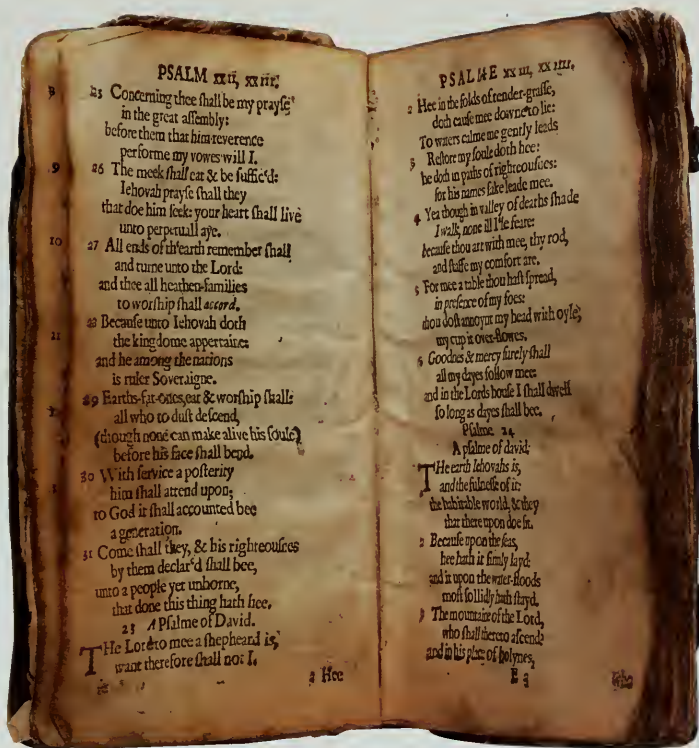 PSALM xxii, xxiii.
25 Concerning thee ſhall be my prayſe
in the great aſſembly:
before them that him reverence
performe my vowes will I.
26 The meek ſhall eat & be ſuffic'd:
Iehovah prayſe ſhall they
that doe him ſeek: your heart ſhall live
unto perpetuall aye.
27 All ends of th'earth remember ſhall
and turne unto the Lord:
and thee all heathen-families
to worſhip ſhall accord.
28 Becauſe unto Iehovah doth
the kingdome appertaine:
and he among the nations
is ruler Soveraigne.
29 Earths-fat-ones, eat & worſhip ſhall:
all who to duſt deſcend,
(though none can make alive his ſoule)
before his face ſhall bend.
30 With ſervice a poſterity
him ſhall attend upon;
to God it ſhall accounted bee
a generation.
31 Come ſhall they, & his righteouſnes
by them declar'd ſhall bee,
unto a people yet unborne,
that done this thing hath hee.
23 A Pſalme of David.
THe Lord to mee a ſhepheard is,
want therefore ſhall not I.
2 Hee
PSALME xxiii, xxiiii.
2 Hee in the folds of tender-graſſe,
doth cauſe mee downe to lie:
To waters calme me gently leads
3 Reſtore my ſoule doth hee:
he doth in paths of righteouſnes:
for his names ſake leade mee.
4 Yea though in valley of deaths ſhade
I walk, none ill I'le feare:
becauſe thou art with mee, thy rod,
and ſtaffe my comfort are.
5 For mee a table thou haſt ſpread,
in preſence of my foes:
thou doſt annoynt my head with oyle,
my cup it over-flowes.
6 Goodnes & mercy ſurely ſhall
all my dayes follow mee:
and in the Lords houſe I ſhall dwell
ſo long as dayes ſhall bee.
Pſalme 24
A pſalme of david.
THe earth Iehovahs is,
and the fulneſſe of it:
the habitable world, & they
that there upon doe ſit.
2 Becauſe upon the ſeas,
hee hath it firmly layd:
and it upon the water-floods
moſt ſollidly hath ſtayd.
3 The mountaine of the Lord,
who ſhall thereto aſcend?
and in his place of holynes,
E 3